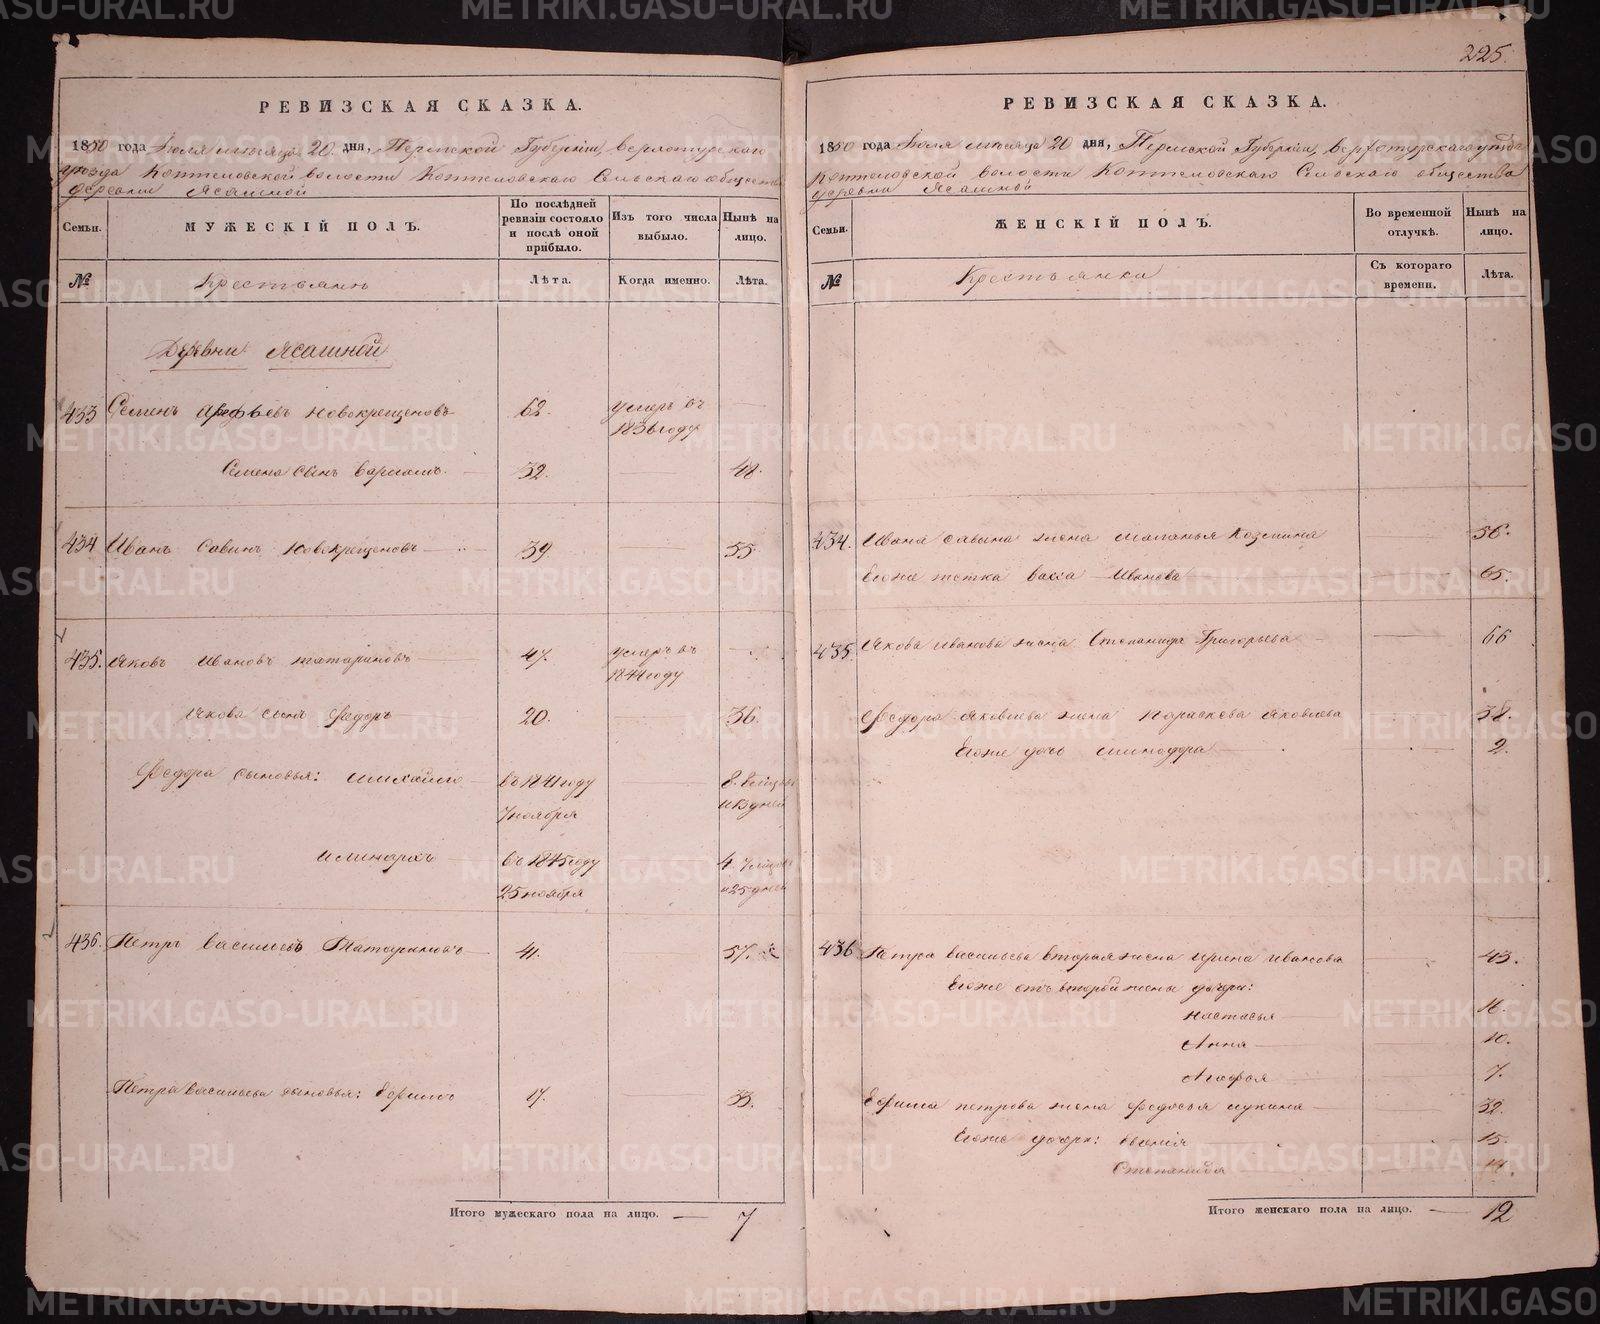 РЕВИЗСКАЯ СКАЗКА.
1850 года Июля мѣсяца 20 дня, Пермской Губерніи, верхотурскаго
уѣзда Коптеловской волости Коптеловскаго Сельскаго общества
деревни Ясашной
Семьи.
МУЖЕСКІЙ ПОЛЪ.
По послѣдней ревизіи состояло и послѣ оной прибыло.
Изъ того числа выбыло.
Нынѣ на лицо.
№
Крестьянъ
Лѣта.
Когда именно.
Лѣта.
Деревни Ясашной
433 Семенъ Арефьевъ Новокрещеновъ 62. умеръ въ
1836 году
Семена сынъ Варламъ. 32. 48.
434 Иванъ Савинъ Новокрещеновъ 39. 55.
435. Яковъ Ивановъ татариновъ 47. умеръ въ
1844 году
Якова сынъ Федоръ 20. 36.
Федора сыновья: Михайло въ 1841 году
7 ноября
въ 1845 году
25 ноября
436. Петръ Васильевъ Татариновъ 41. 57.
Петра Васильева сыновья: Ефимъ 17. 33.
Итого мужескаго пола на лицо. — 7
225.
РЕВИЗСКАЯ СКАЗКА.
1850 года Июля мѣсяца 20 дня, Пермской Губерніи, верхотурскаго уѣзда
Коптеловской волости Коптеловскаго Сельскаго общества
деревни Ясашной
Семьи.
ЖЕНСКІЙ ПОЛЪ.
Во временной отлучкѣ.
Нынѣ на лицо.
№
Крестьянки
Съ котораго времени.
Лѣта.
434. Ивана Савина жена Маланья Козмина 56.
Егоже тетка Васса Иванова 65.
435. Якова Иванова жена Степанида Григорьева 66
Федора Яковлева жена Параскева Яковлева 38.
Егоже дочь Минодора 2.
436 Петра Васильева вторая жена Ирина Иванова 43.
Егоже отъ второй жены дочери:
Настасья 16.
Анна 10.
Агафья 7.
Ефима Петрова жена Федосья Лукина 32.
Егоже дочери: 15.
Степанида
Итого женскаго пола на лицо. — 12
METRIKI.GASO-URAL.RU